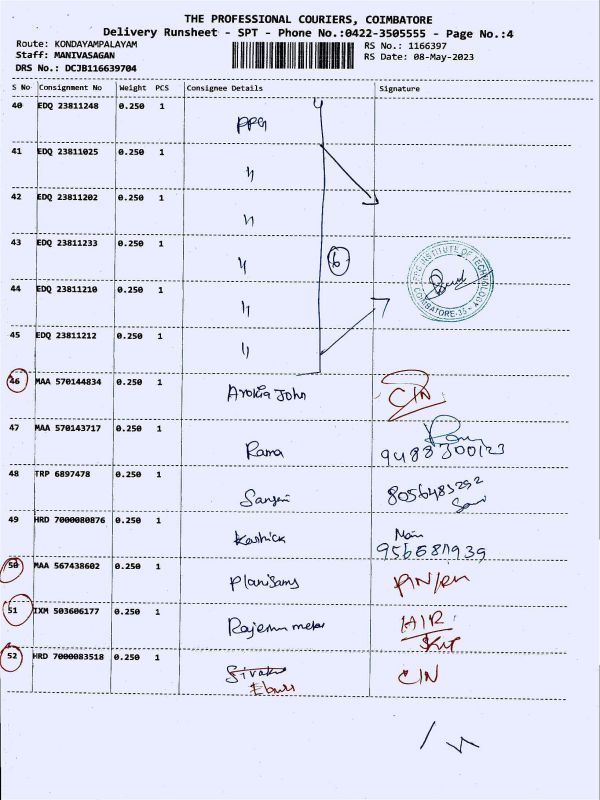 THE PROFESSIONAL COURIERS, COIMBATORE
Delivery Runsheet - SPT - Phone No.:0422-3505555 - Page No.:4
Route: KONDAYAMPALAYAM RS No.: 1166397
Staff: MANIVASAGAN RS Date: 08-May-2023
DRS No.: DCJB116639704
S No Consignment No Weight PCS Consignee Details Signature
40 EDQ 23811248 0.250 1 PPG
41 EDQ 23811025 0.250 1 "
42 EDQ 23811202 0.250 1 "
43 EDQ 23811233 0.250 1 " 6
INSTITUTE OF TECHNOLOGY
COIMBATORE-35
44 EDQ 23811210 0.250 1 "
45 EDQ 23811212 0.250 1 "
46 MAA 570144834 0.250 1 Arokia John C/N
47 MAA 570143717 0.250 1 Rama
48 TRP 6897478 0.250 1 8056483292
49 HRD 7000080876 0.250 1 Karthick
50 MAA 567438602 0.250 1
51 IXM 503606177 0.250 1
52 HRD 7000083518 0.250 1 C/N